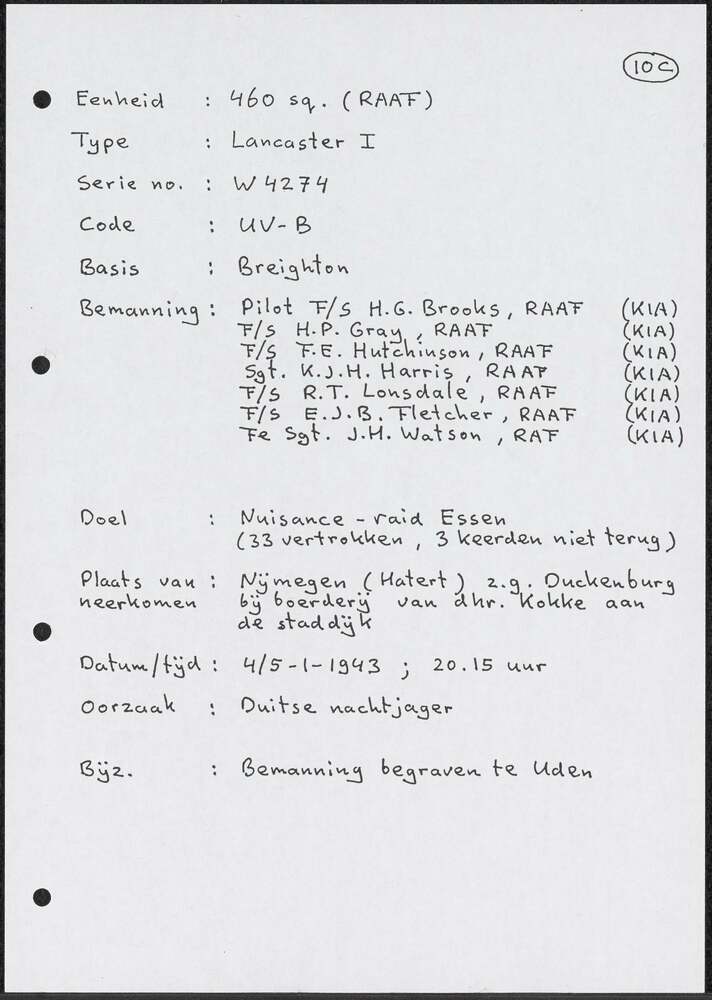 10C
Eenheid : 460 sq. (RAAF)
Type : Lancaster I
Serie no. : W4274
Code : UV-B
Basis : Breighton
Bemanning : Pilot F/S H.G. Brooks, RAAF (KIA)
F/S H.P. Gray, RAAF (KIA)
F/S F.E. Hutchinson, RAAF (KIA)
Sgt. K.J.H. Harris, RAAF (KIA)
F/S R.T. Lonsdale, RAAF (KIA)
F/S E.J.B. Fletcher, RAAF (KIA)
Fe Sgt. J.H. Watson, RAF (KIA)
Doel : Nuisance-raid Essen
(33 vertrokken, 3 keerden niet terug)
Plaats van : Nijmegen (Hatert) z.g. Duckenburg
neerkomen bij boerderij van dhr. Kokke aan
de staddijk
Datum/tijd : 4/5-1-1943 ; 20.15 uur
Oorzaak : Duitse nachtjager
Bijz. : Bemanning begraven te Uden